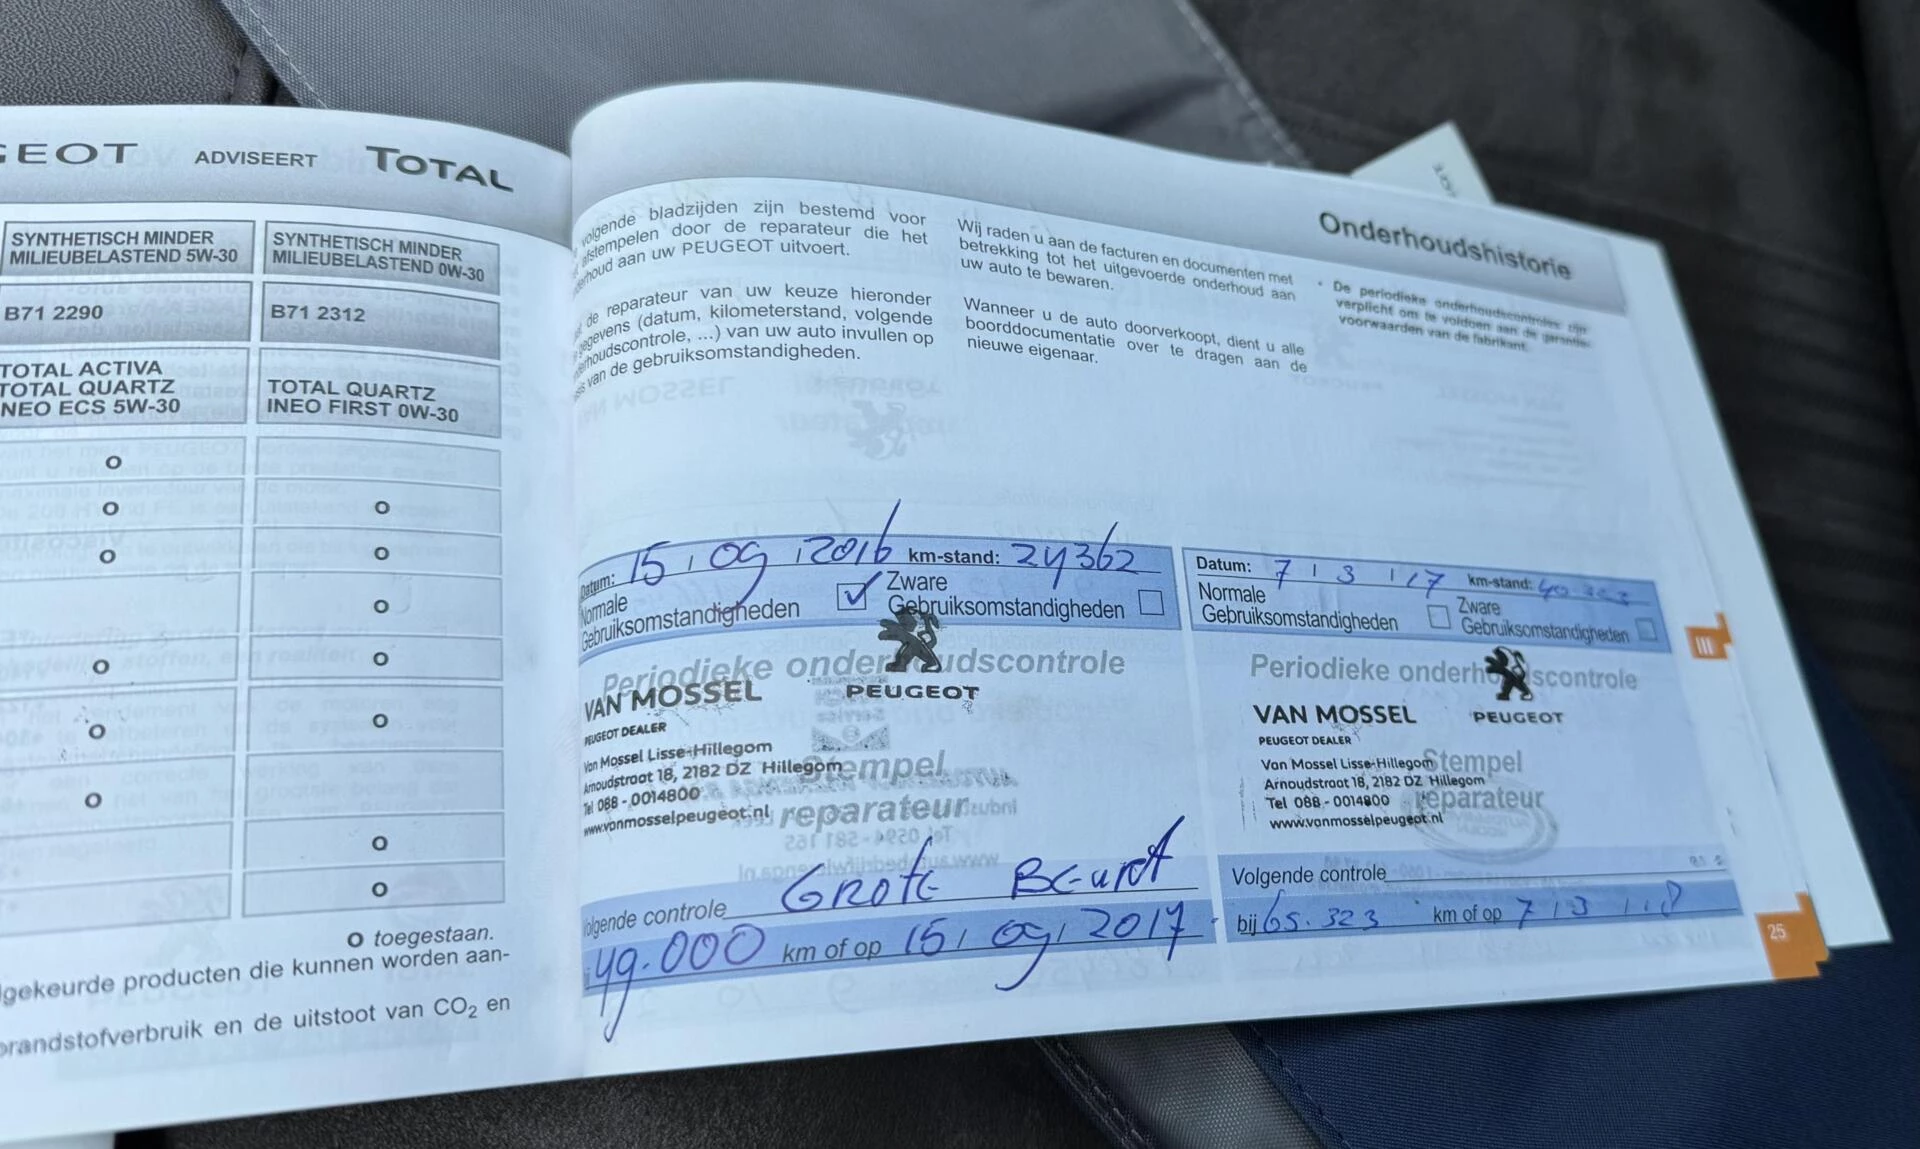 GEOT ADVISEERT TOTAL
SYNTHETISCH MINDER
MILIEUBELASTEND 5W-30
SYNTHETISCH MINDER
MILIEUBELASTEND 0W-30
B71 2290
B71 2312
TOTAL ACTIVA
TOTAL QUARTZ
INEO ECS 5W-30
TOTAL QUARTZ
INEO FIRST 0W-30
O
O O
O O
O
O O
O O
O
O
O
O toegestaan.
gekeurde producten die kunnen worden aan-
brandstofverbruik en de uitstoot van CO2 en
Onderhoudshistorie
volgende bladzijden zijn bestemd voor
afstempelen door de reparateur die het
onderhoud aan uw PEUGEOT uitvoert.
de reparateur van uw keuze hieronder
gegevens (datum, kilometerstand, volgende
onderhoudscontrole, ...) van uw auto invullen op
van de gebruiksomstandigheden.
Wij raden u aan de facturen en documenten met
betrekking tot het uitgevoerde onderhoud aan
uw auto te bewaren.
Wanneer u de auto doorverkoopt, dient u alle
boorddocumentatie over te dragen aan de
nieuwe eigenaar.
* De periodieke onderhoudscontroles zijn
verplicht om te voldoen aan de garantie-
voorwaarden van de fabrikant.
Datum: 15 / 09 / 2016 km-stand: 24362
Normale
Gebruiksomstandigheden
Zware
Gebruiksomstandigheden
Periodieke onderhoudscontrole
VAN MOSSEL
PEUGEOT DEALER
PEUGEOT
Van Mossel Lisse-Hillegom
Arnoudstraat 18, 2182 DZ Hillegom
Tel 088 - 0014800
www.vanmosselpeugeot.nl
Stempel
reparateur
Volgende controle GROTE BEURT
49.000 km of op 15 / 09 / 2017
Datum: 7 / 3 / 17 km-stand: 40.323
Normale
Gebruiksomstandigheden
Zware
Gebruiksomstandigheden
Periodieke onderhoudscontrole
VAN MOSSEL
PEUGEOT DEALER
PEUGEOT
Van Mossel Lisse-Hillegom
Arnoudstraat 18, 2182 DZ Hillegom
Tel 088 - 0014800
www.vanmosselpeugeot.nl
Stempel
reparateur
Volgende controle
bij 65.323 km of op 7 / 3 / 18
III
25